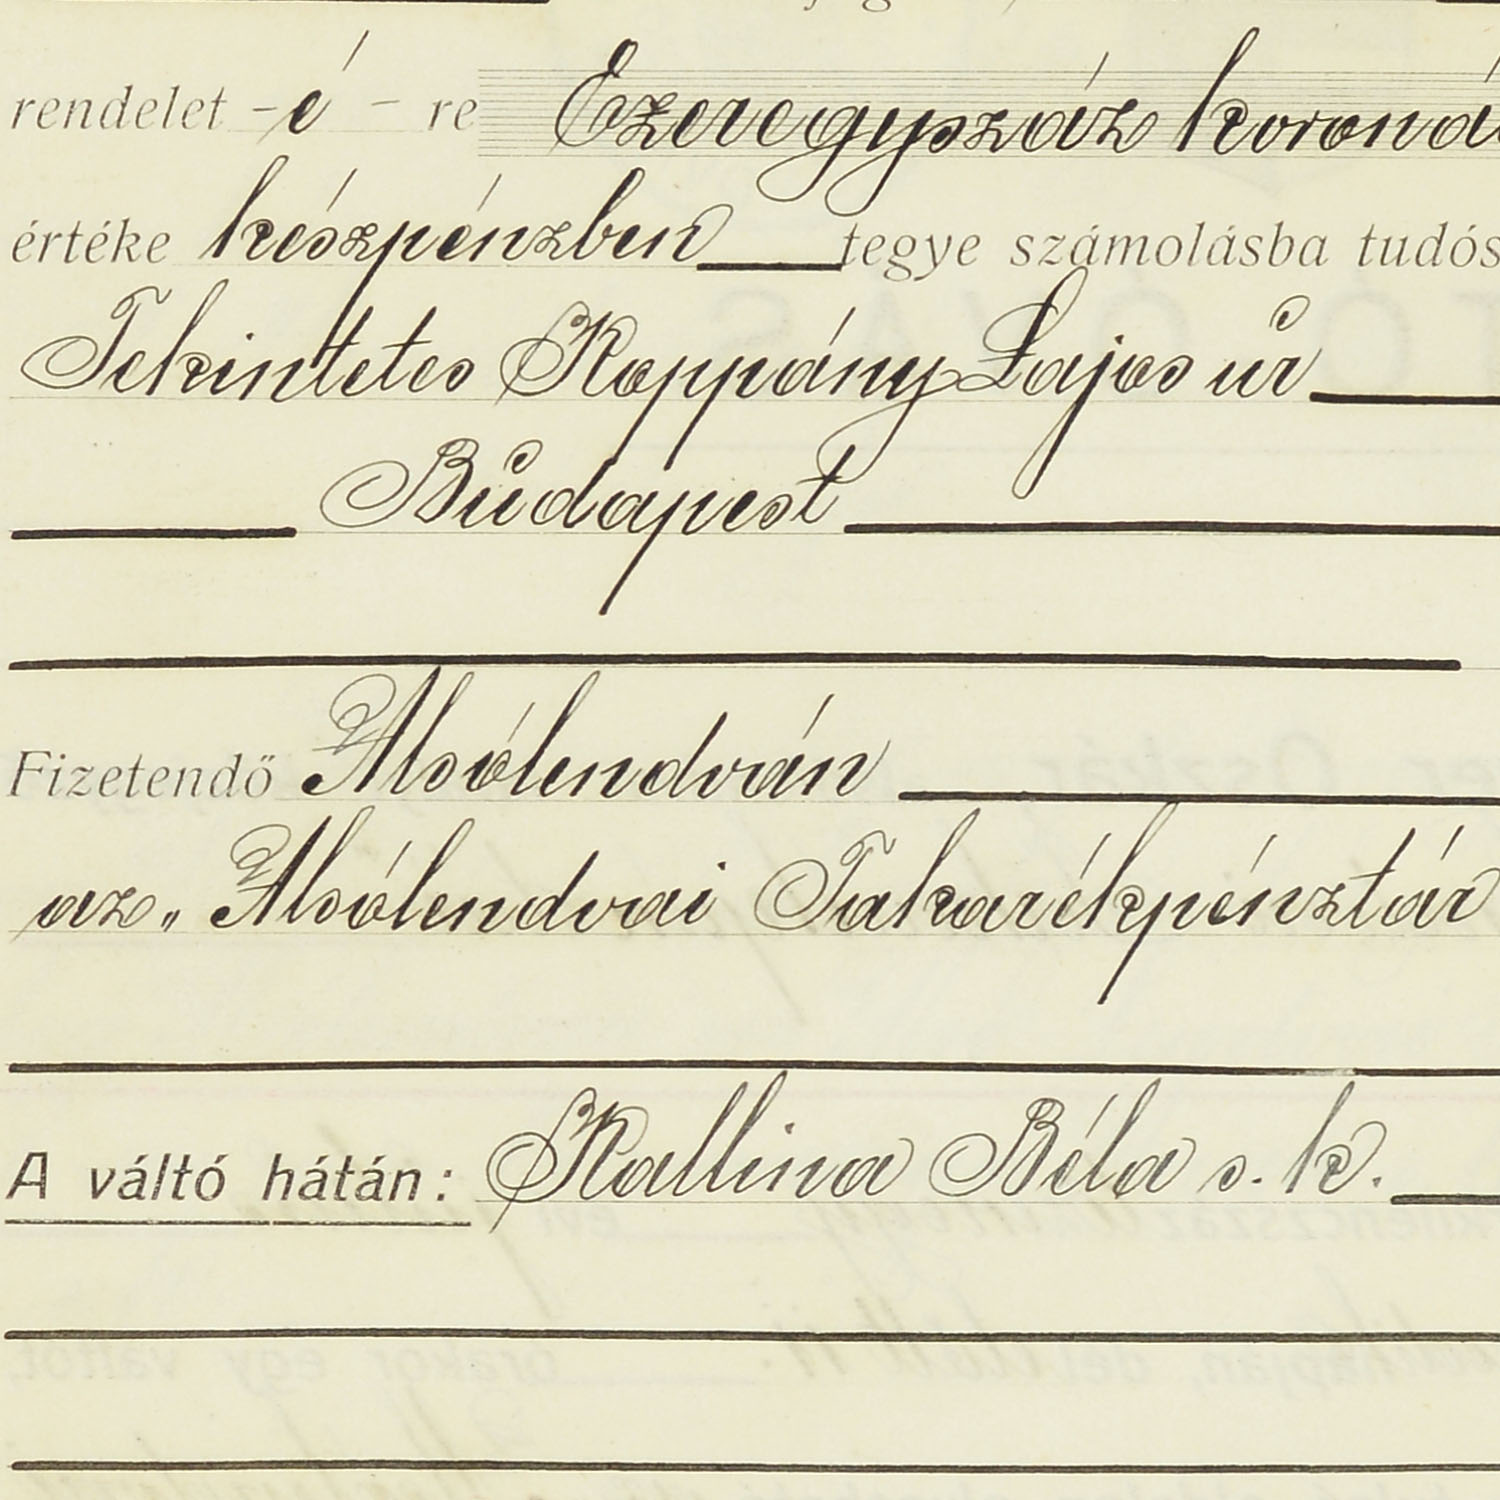 rendelet - é - re Ezeregyszáz koroná
értéke készpénzben tegye számolásba tudós
Tekintetes Koppány Lajos úr
Budapest
Fizetendő Alsólendván
az „ Alsólendvai Takarékpénztár
A váltó hátán: Kallina Béla s. k.